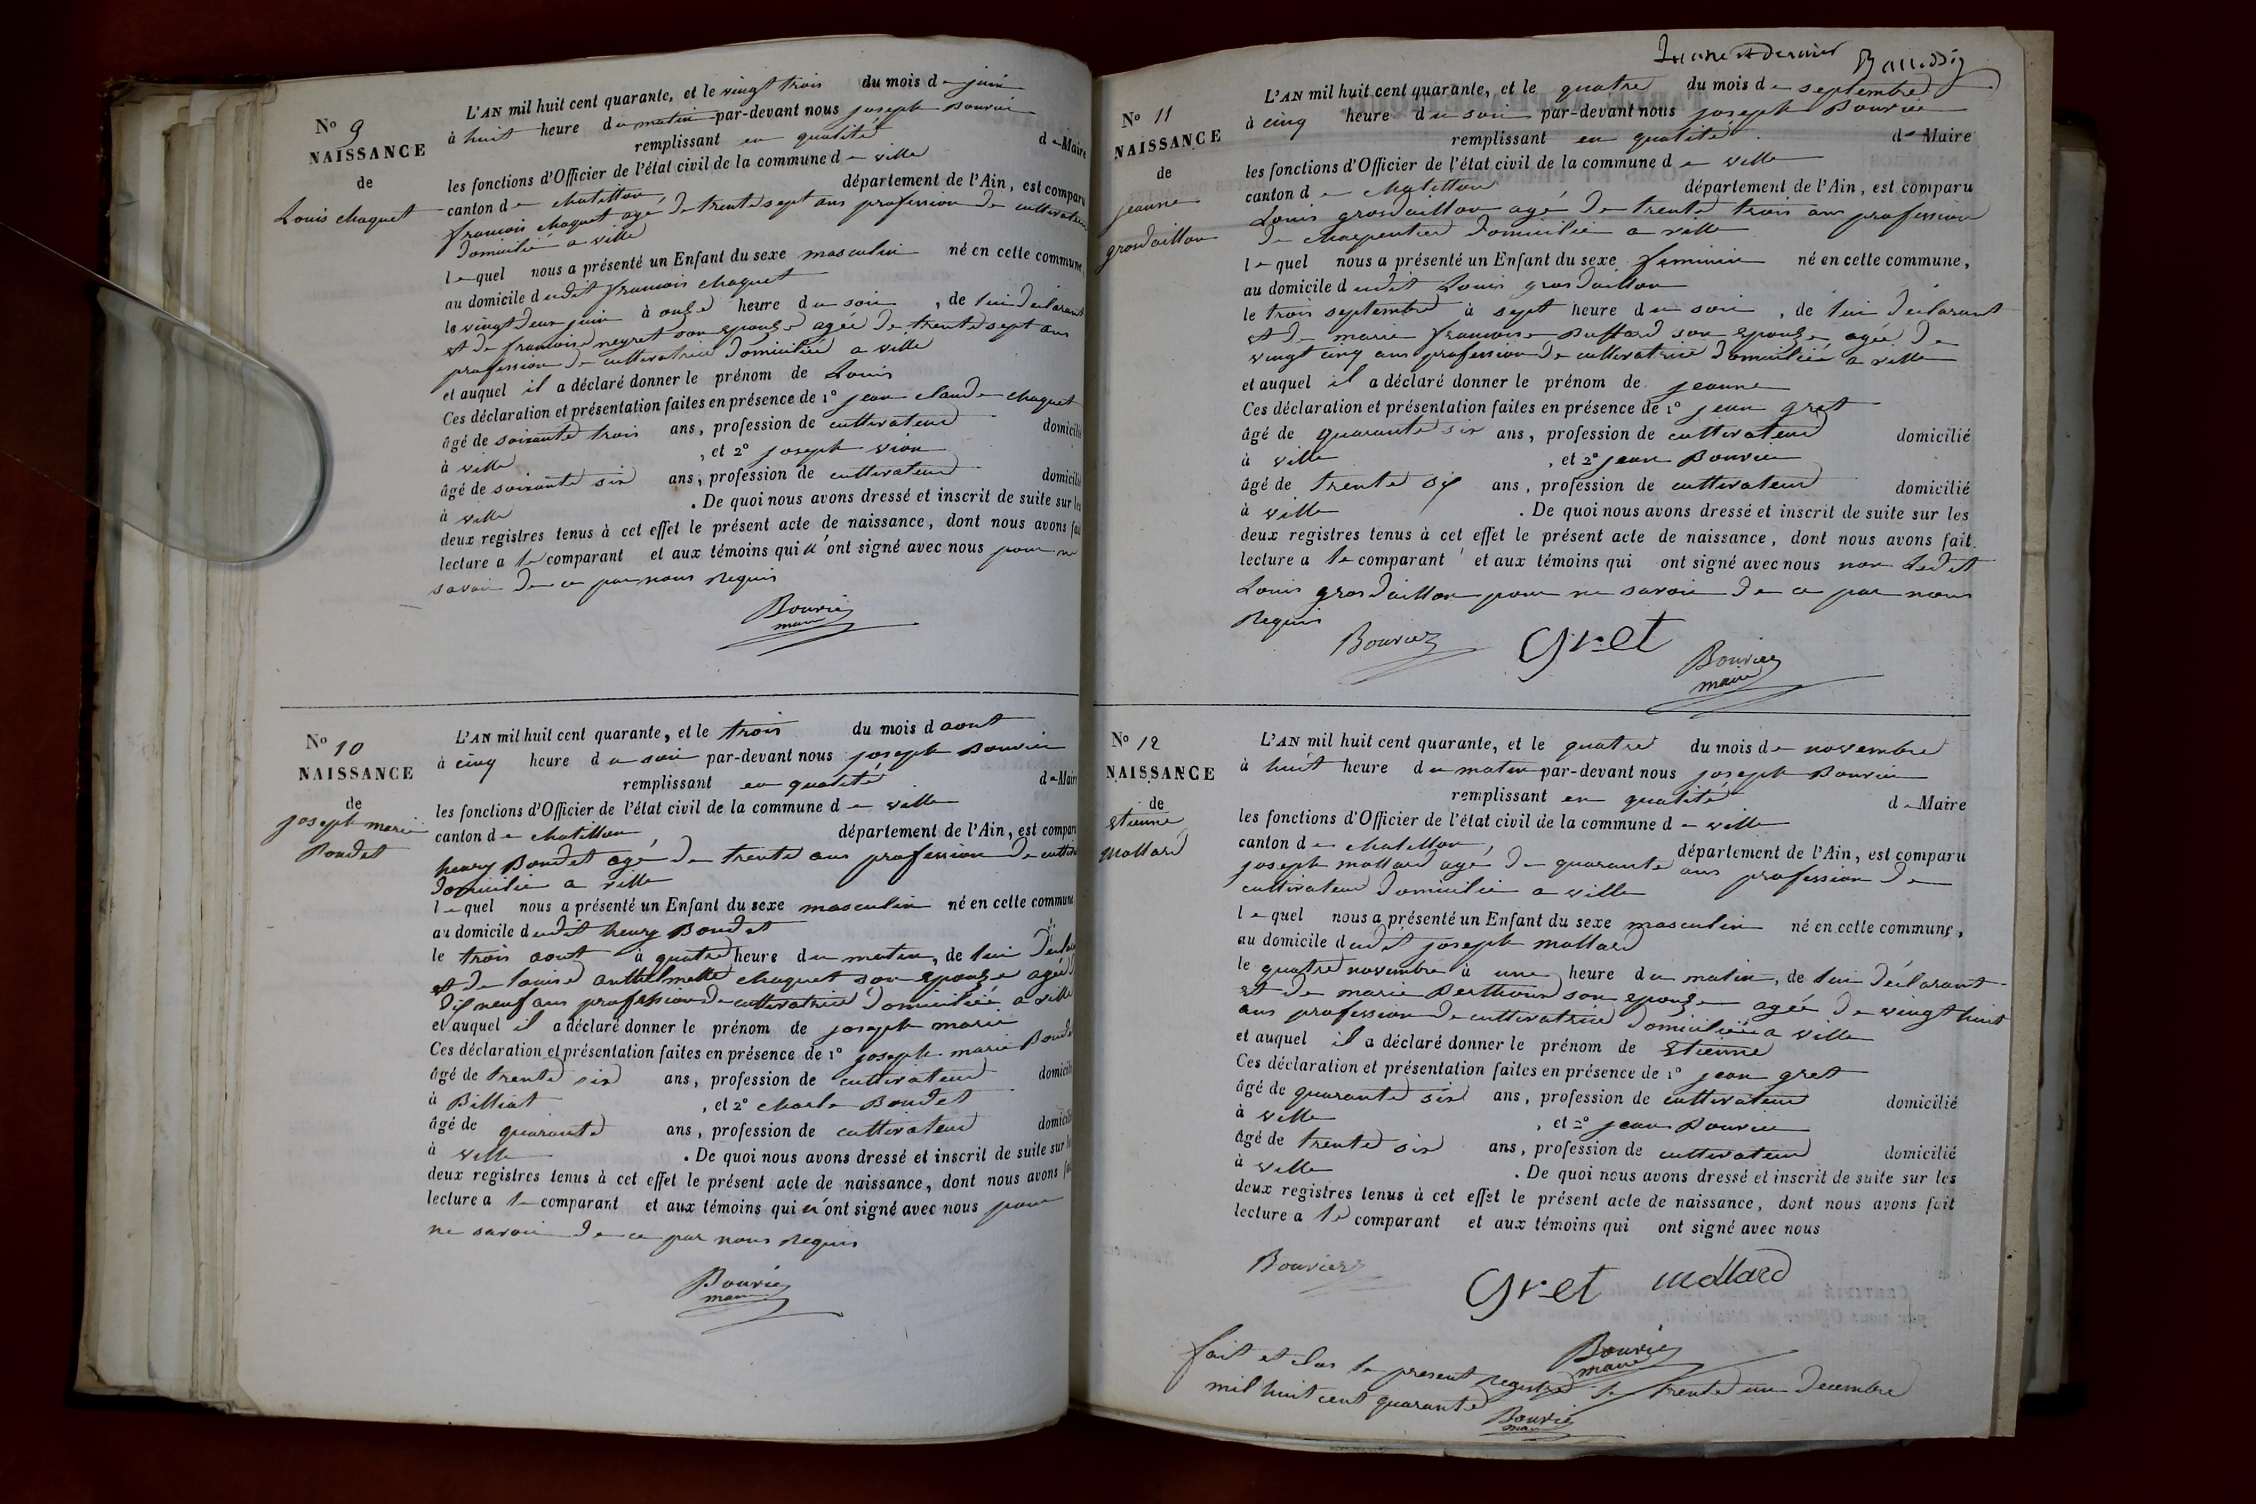 N° 9
NAISSANCE
de
Louis chaquet
L'AN mil huit cent quarante, et le vingt trois du mois de juin
à huit heure du matin par-devant nous joseph Bouvier
remplissant en qualité de Maire
les fonctions d'Officier de l'état civil de la commune de ville
canton de chatillon, département de l'Ain, est comparu
francois chaquet agé de trente sept ans profession de cultivateur
domicilié a ville
lequel nous a présenté un Enfant du sexe masculin né en cette commune,
au domicile dudit francois chaquet
le vingt deux juin à onze heure du soir, de lui déclarant
et de francoise neyret son epouse agée de trente sept ans
profession de cultivatrice domiciliée a ville
et auquel il a déclaré donner le prénom de Louis
Ces déclaration et présentation faites en présence de 1° jean claude chaquet
âgé de soixante trois ans, profession de cultivateur domicilié
à ville, et 2° joseph vion
âgé de soixante six ans, profession de cultivateur domicilié
à ville. De quoi nous avons dressé et inscrit de suite sur les
deux registres tenus à cet effet le présent acte de naissance, dont nous avons fait
lecture a le comparant et aux témoins qui n'ont signé avec nous pour ne
savoir de ce par nous requis
Bouvier
maire
N° 10
NAISSANCE
de
joseph marie
Boudet
L'AN mil huit cent quarante, et le trois du mois d aout
à cinq heure du soir par-devant nous joseph Bouvier
remplissant en qualité de Maire
les fonctions d'Officier de l'état civil de la commune de ville
canton de chatillon, département de l'Ain, est comparu
henry Boudet agé de trente ans profession de cultiv
domicilié a ville
lequel nous a présenté un Enfant du sexe masculin né en cette commune
au domicile dudit henry Boudet
le trois aout à quatre heure du matin, de lui décla
et de louise anthelmette chaquet son epouse agée d
dix neuf ans profession de cultivatrice domiciliée a ville
et auquel il a déclaré donner le prénom de joseph marie
Ces déclaration et présentation faites en présence de 1° joseph marie Boude
âgé de trente six ans, profession de cultivateur domicilié
à Billiat, et 2° charle Boudet
âgé de quarante ans, profession de cultivateur domicilié
à ville. De quoi nous avons dressé et inscrit de suite sur le
deux registres tenus à cet effet le présent acte de naissance, dont nous avons fai
lecture a le comparant et aux témoins qui n'ont signé avec nous pour
ne savoir de ce par nous requis
Bouvier
maire
et dernier
N° 11
NAISSANCE
de
jeanne
grosdaillon
L'AN mil huit cent quarante, et le quatre du mois de septembre
à cinq heure du soir par-devant nous joseph Bouvier
remplissant en qualité de Maire
les fonctions d'Officier de l'état civil de la commune de ville
canton de chatillon département de l'Ain, est comparu
Louis grosdaillon agé de trente trois ans profession
de charpentier domicilié a ville
lequel nous a présenté un Enfant du sexe feminin né en cette commune,
au domicile dudit Louis grosdaillon
le trois septembre à sept heure du soir, de lui déclarant
et de marie francoise Buffard son epouse agée de
vingt cinq ans profession de cultivatrice domiciliée a ville
et auquel il a déclaré donner le prénom de jeanne
Ces déclaration et présentation faites en présence de 1° jean gret
âgé de quarante six ans, profession de cultivateur domicilié
à ville, et 2° jean Bouvier
âgé de trente six ans, profession de cultivateur domicilié
à ville. De quoi nous avons dressé et inscrit de suite sur les
deux registres tenus à cet effet le présent acte de naissance, dont nous avons fait
lecture a le comparant et aux témoins qui ont signé avec nous non ledit
Louis grosdaillon pour ne savoir de ce par nous
requis
Bouvier gret Bouvier
maire
N° 12
NAISSANCE
de
etienne
mollard
L'AN mil huit cent quarante, et le quatre du mois de novembre
à huit heure du matin par-devant nous joseph Bouvier
remplissant en qualité de Maire
les fonctions d'Officier de l'état civil de la commune de ville
canton de chatillon, département de l'Ain, est comparu
joseph mollard agé de quarante ans profession de
cultivateur domicilié a ville
lequel nous a présenté un Enfant du sexe masculin né en cette commune,
au domicile dudit joseph mollard
le quatre novembre à une heure du matin, de lui déclarant
et de marie Berthoud son epouse agée de vingt huit
ans profession de cultivatrice domiciliée a ville
et auquel il a déclaré donner le prénom de etienne
Ces déclaration et présentation faites en présence de 1° jean gret
âgé de quarante six ans, profession de cultivateur domicilié
à ville, et 2° jean Bouvier
âgé de trente six ans, profession de cultivateur domicilié
à ville. De quoi nous avons dressé et inscrit de suite sur les
deux registres tenus à cet effet le présent acte de naissance, dont nous avons fait
lecture a le comparant et aux témoins qui ont signé avec nous
Bouvier gret mollard
Bouvier
maire
fait et clos le present registre le trente un decembre
mil huit cent quarante
Bouvier
maire